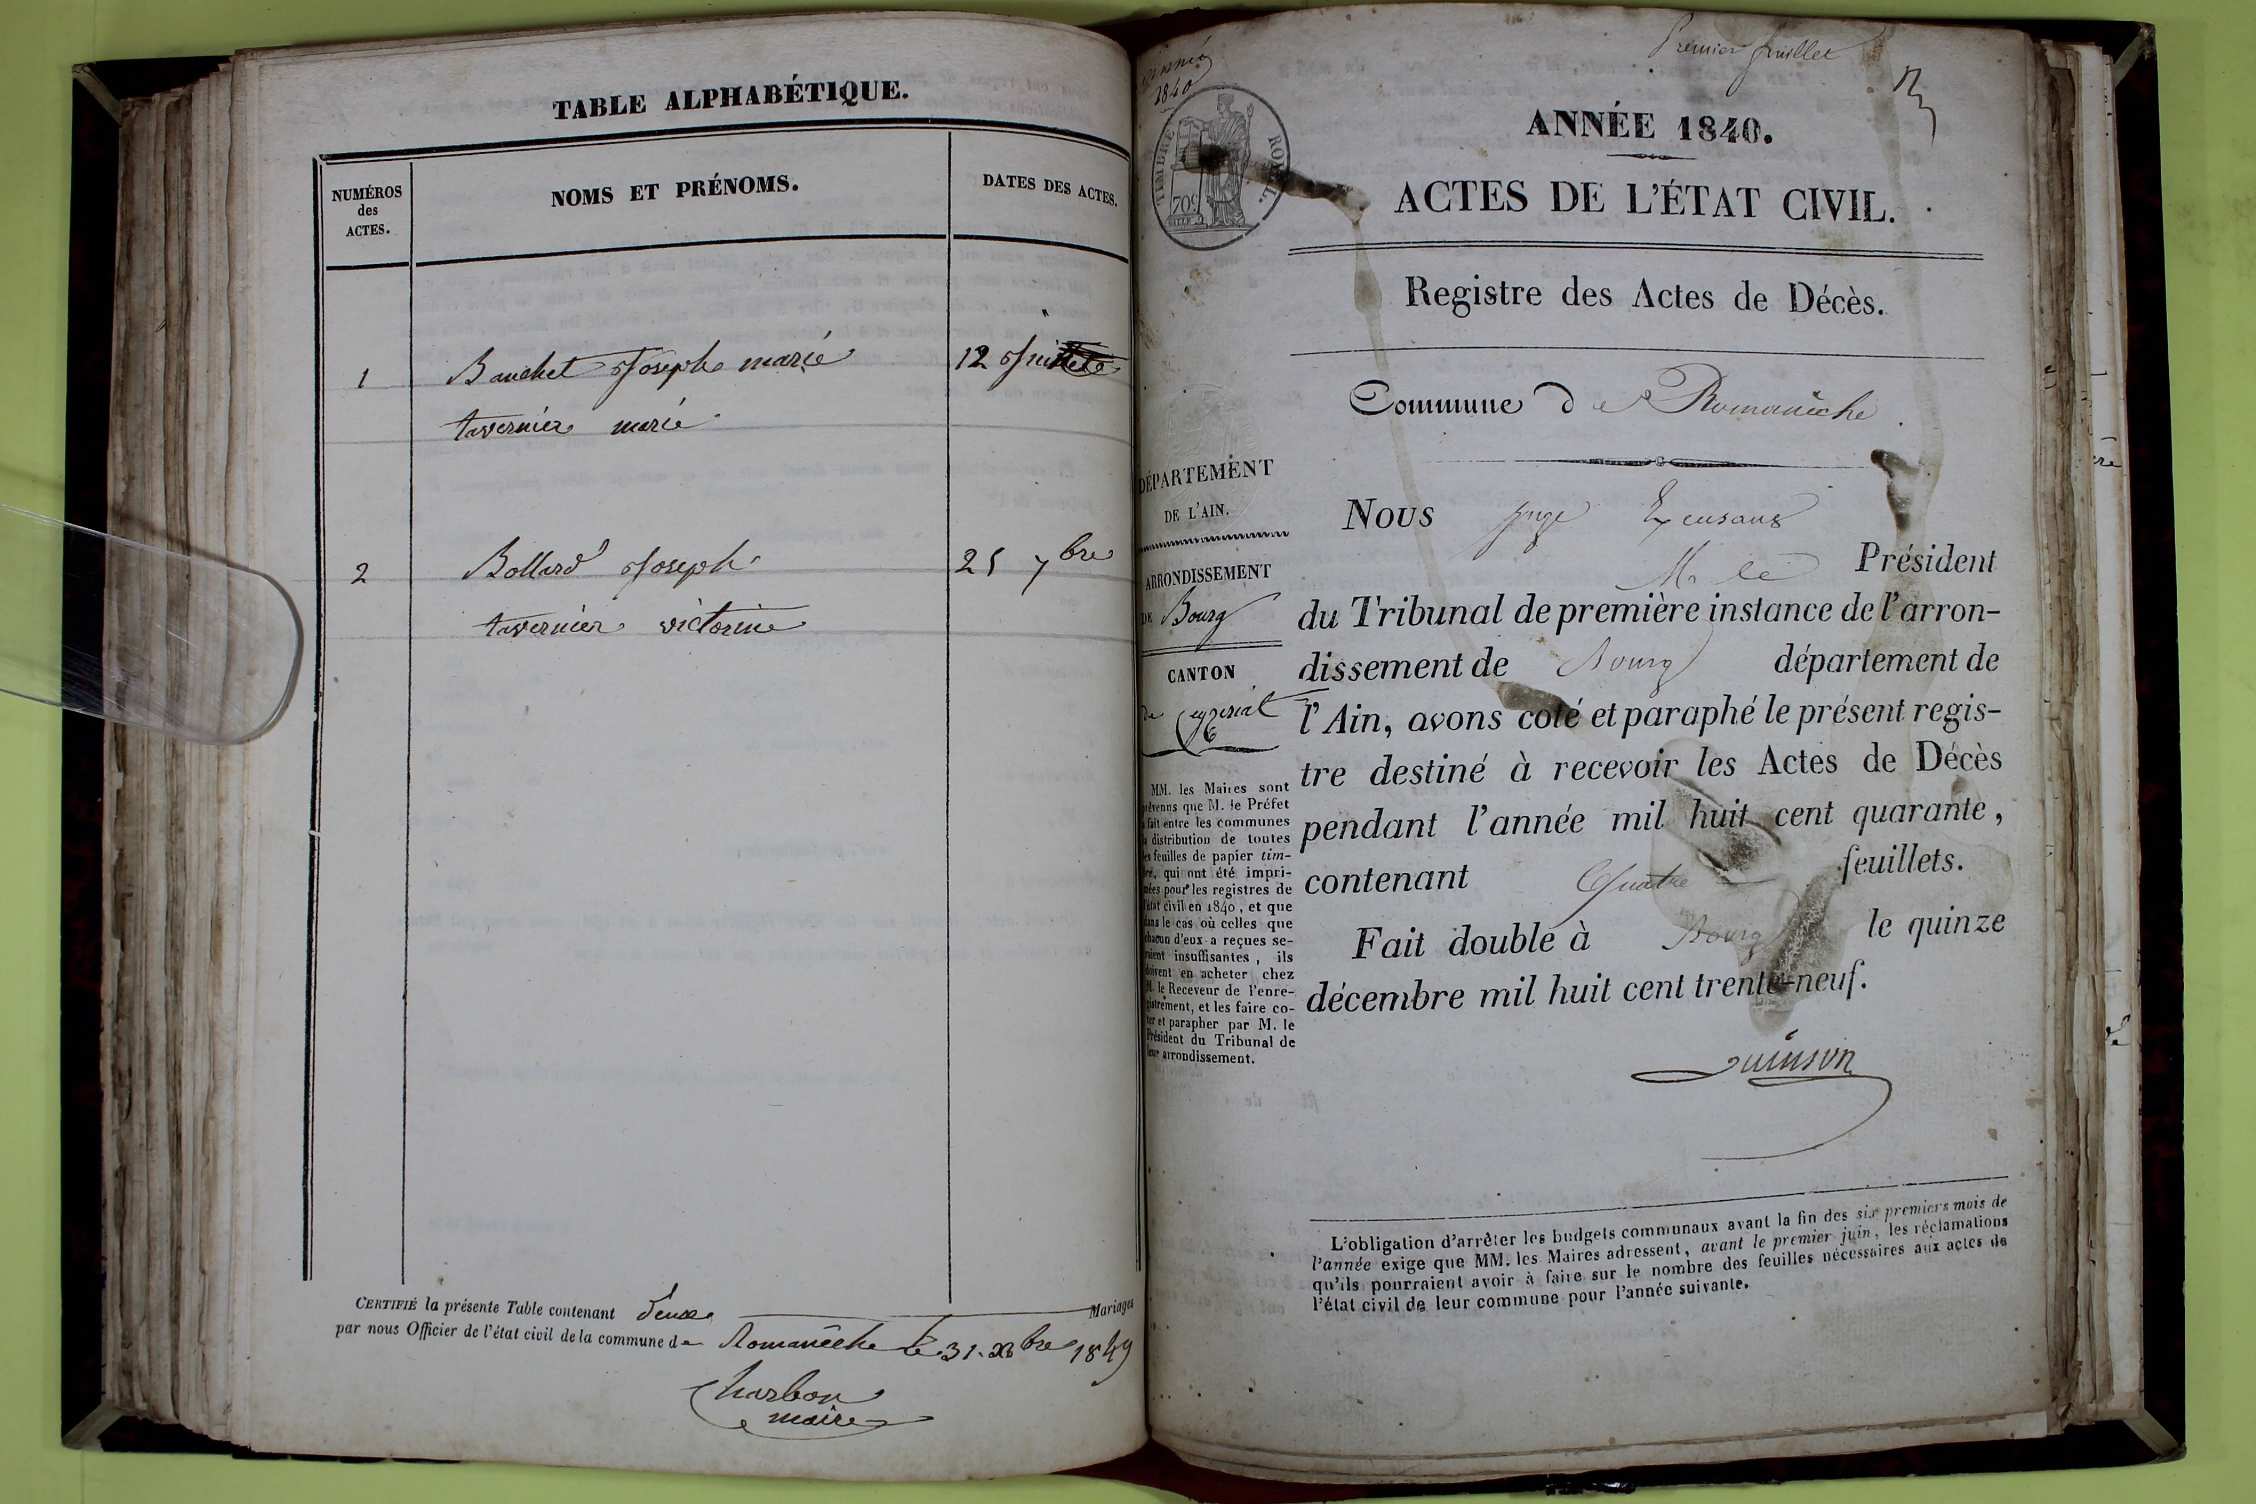 TABLE ALPHABÉTIQUE.
NUMÉROS
des
ACTES.
NOMS ET PRÉNOMS.
DATES DES ACTES.
1 Bauchet Joseph marie 12
tavernier marie
2 Bollard Joseph 25 7bre
tavernier victorine
CERTIFIÉ la présente Table contenant deux Mariages
par nous Officier de l'état civil de la commune de Romanèche le 31 Xbre 1849
Charbon
maire
Premier feuillet
année
1840
TIMBRE ROYAL.
70c
ANNÉE 1840.
ACTES DE L'ÉTAT CIVIL.
Registre des Actes de Décès.
Commune de Romanèche
DÉPARTEMENT
DE L'AIN.
ARRONDISSEMENT
DE Bourg
CANTON
de Ceyzeriat
MM. les Maires sont
prévenus que M. le Préfet
a fait entre les communes
la distribution de toutes
les feuilles de papier tim-
bré, qui ont été impri-
mées pour les registres de
l'état civil en 1840, et que
dans le cas où celles que
chacun d'eux a reçues se-
raient insuffisantes, ils
doivent en acheter chez
M. le Receveur de l'enre-
gistrement, et les faire co-
ter et parapher par M. le
Président du Tribunal de
leur arrondissement.
Nous juge
M. le Président
du Tribunal de première instance de l'arron-
dissement de Bourg département de
l'Ain, avons coté et paraphé le présent regis-
tre destiné à recevoir les Actes de Décès
pendant l'année mil huit cent quarante,
contenant Quatre feuillets.
Fait double à Bourg le quinze
décembre mil huit cent trente-neuf.
Quinson
L'obligation d'arrêter les budgets communaux avant la fin des six premiers mois de
l'année exige que MM. les Maires adressent, avant le premier juin, les réclamations
qu'ils pourraient avoir à faire sur le nombre des feuilles nécessaires aux actes de
l'état civil de leur commune pour l'année suivante.